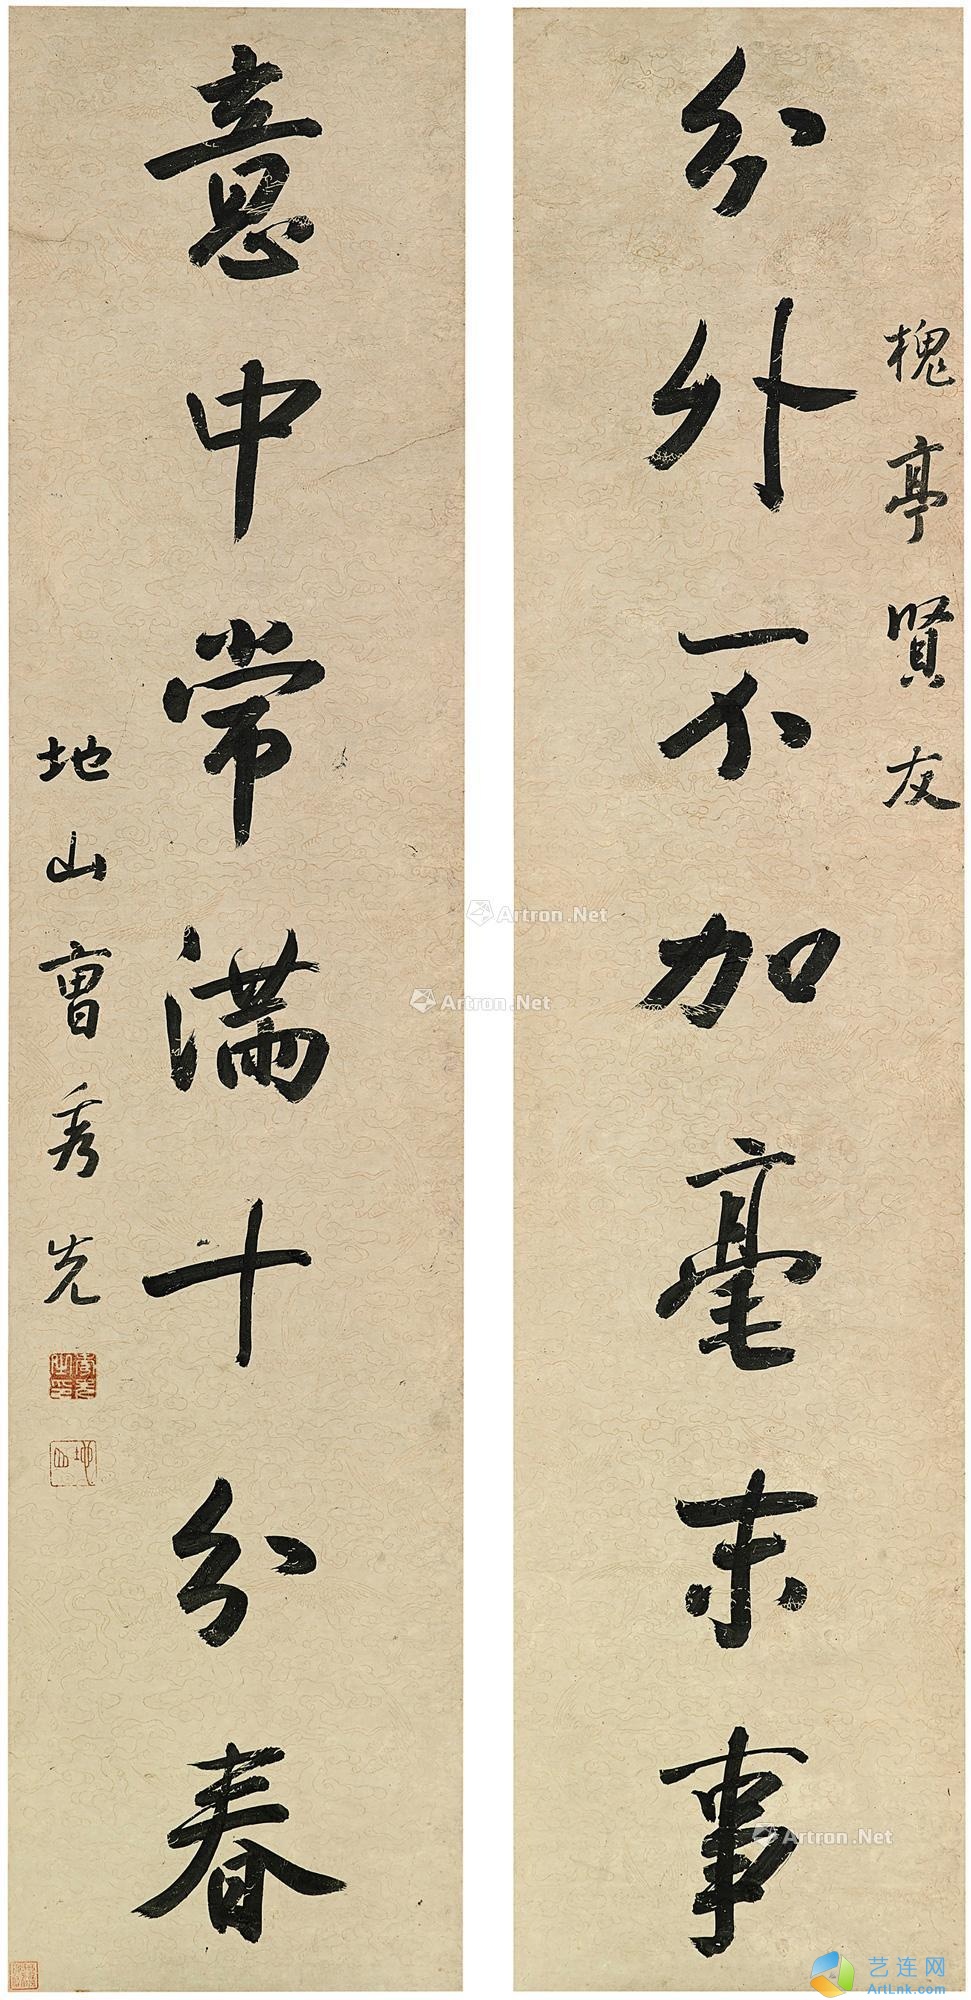 槐亭賢友
分外不加毫末事
意中常滿十分春
地山曹秀先
地山
Artron.Net
Artron.Net
Artron.Net
Artron.Net
艺连网
ArtLnk.com